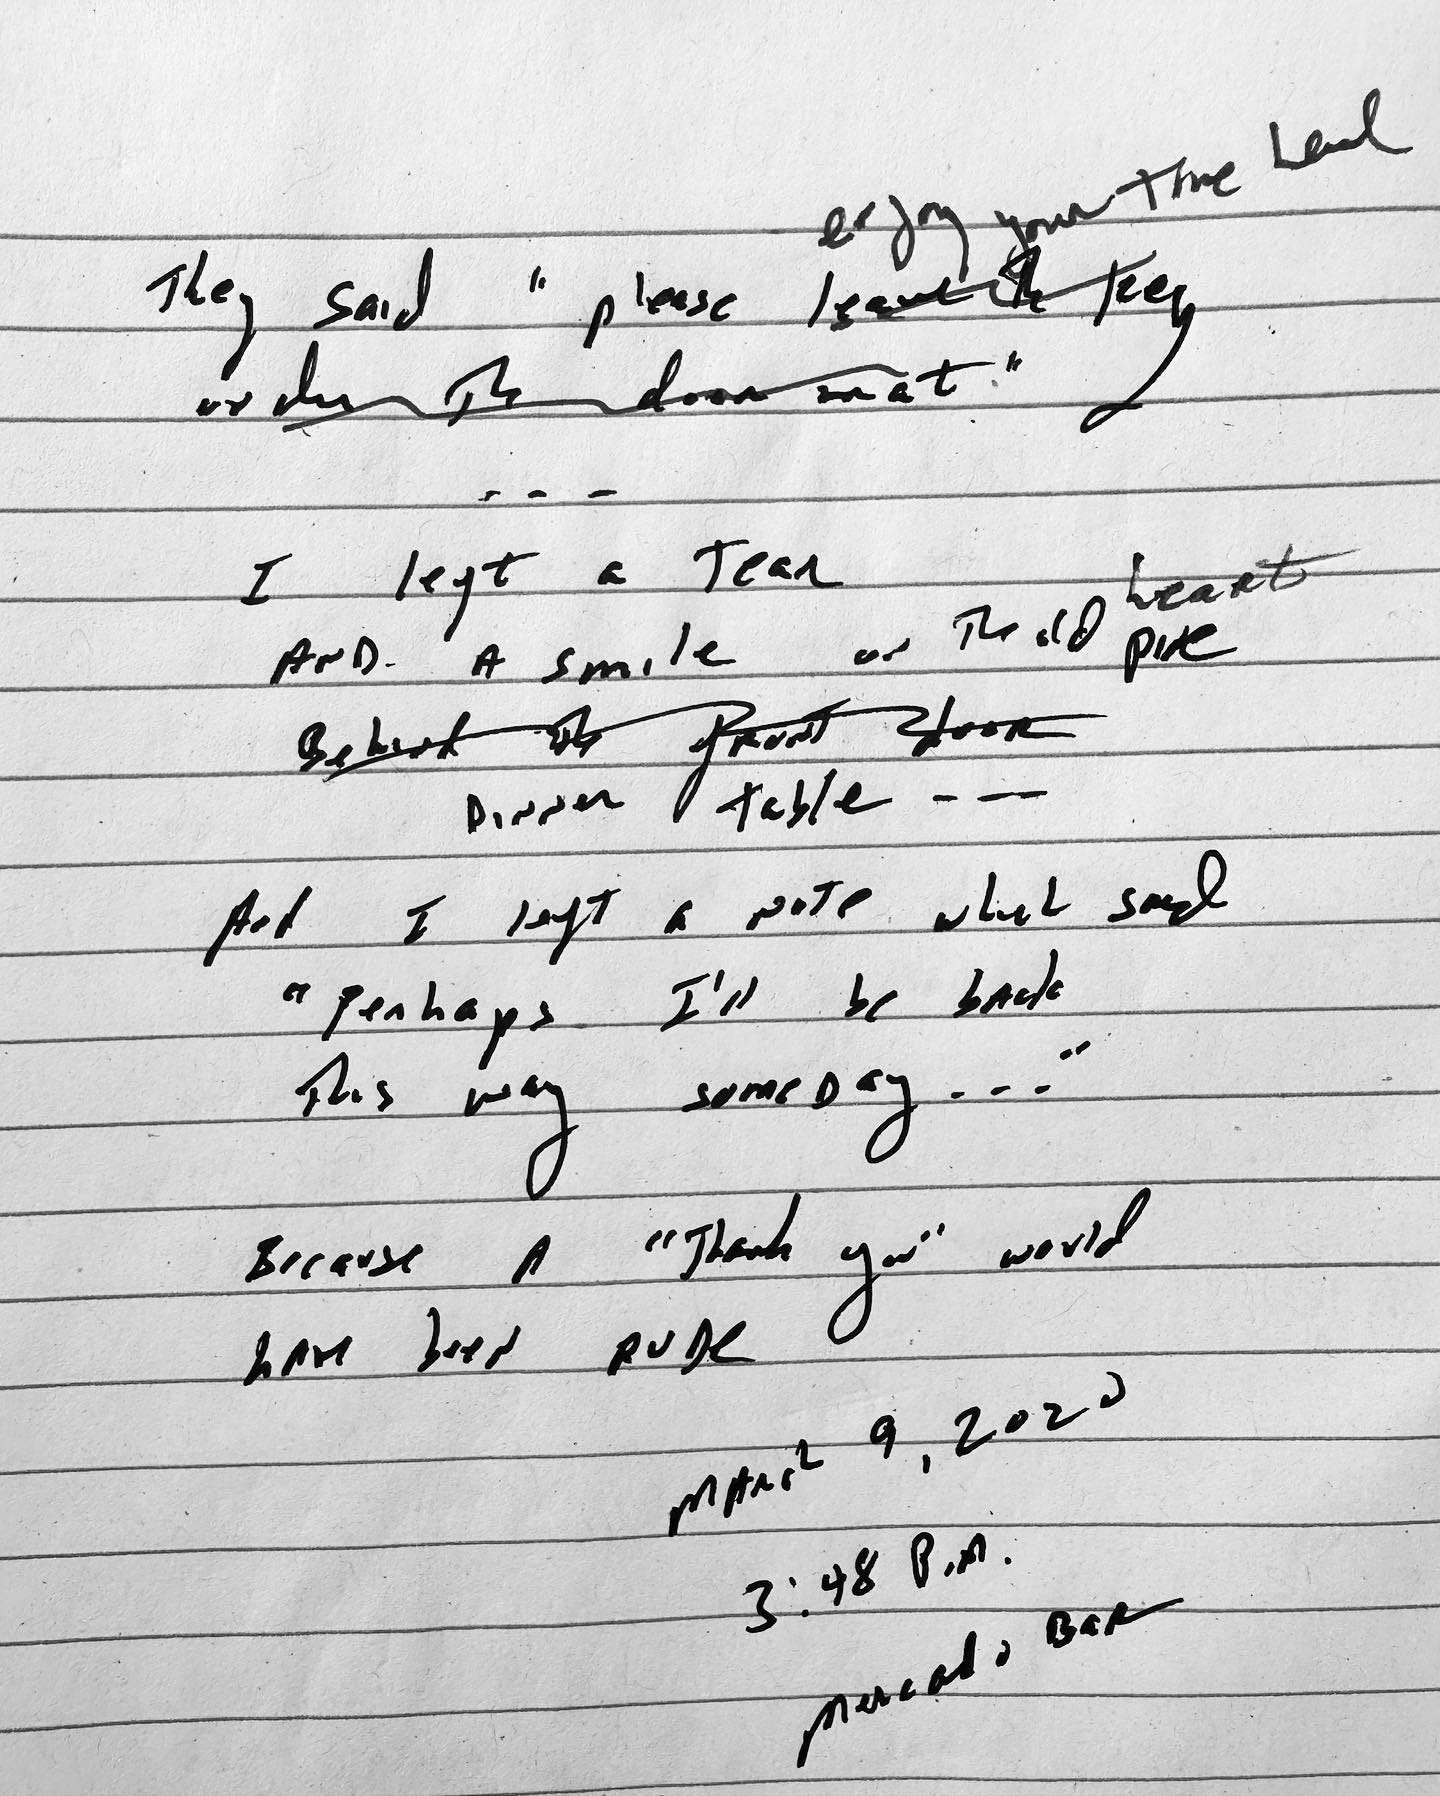 enjoy your time
They said "please leave the key
under the door mat."
---
I left a Tear
heart
AND. A smile on The old pine
Behind the front door
Dinner table ---
And I left a note which said
"Perhaps I'll be back
This way someday..."
Because A "Thank you" would
have been RUDE
MARch 9, 2020
3:48 P.M.
Mercado BAR